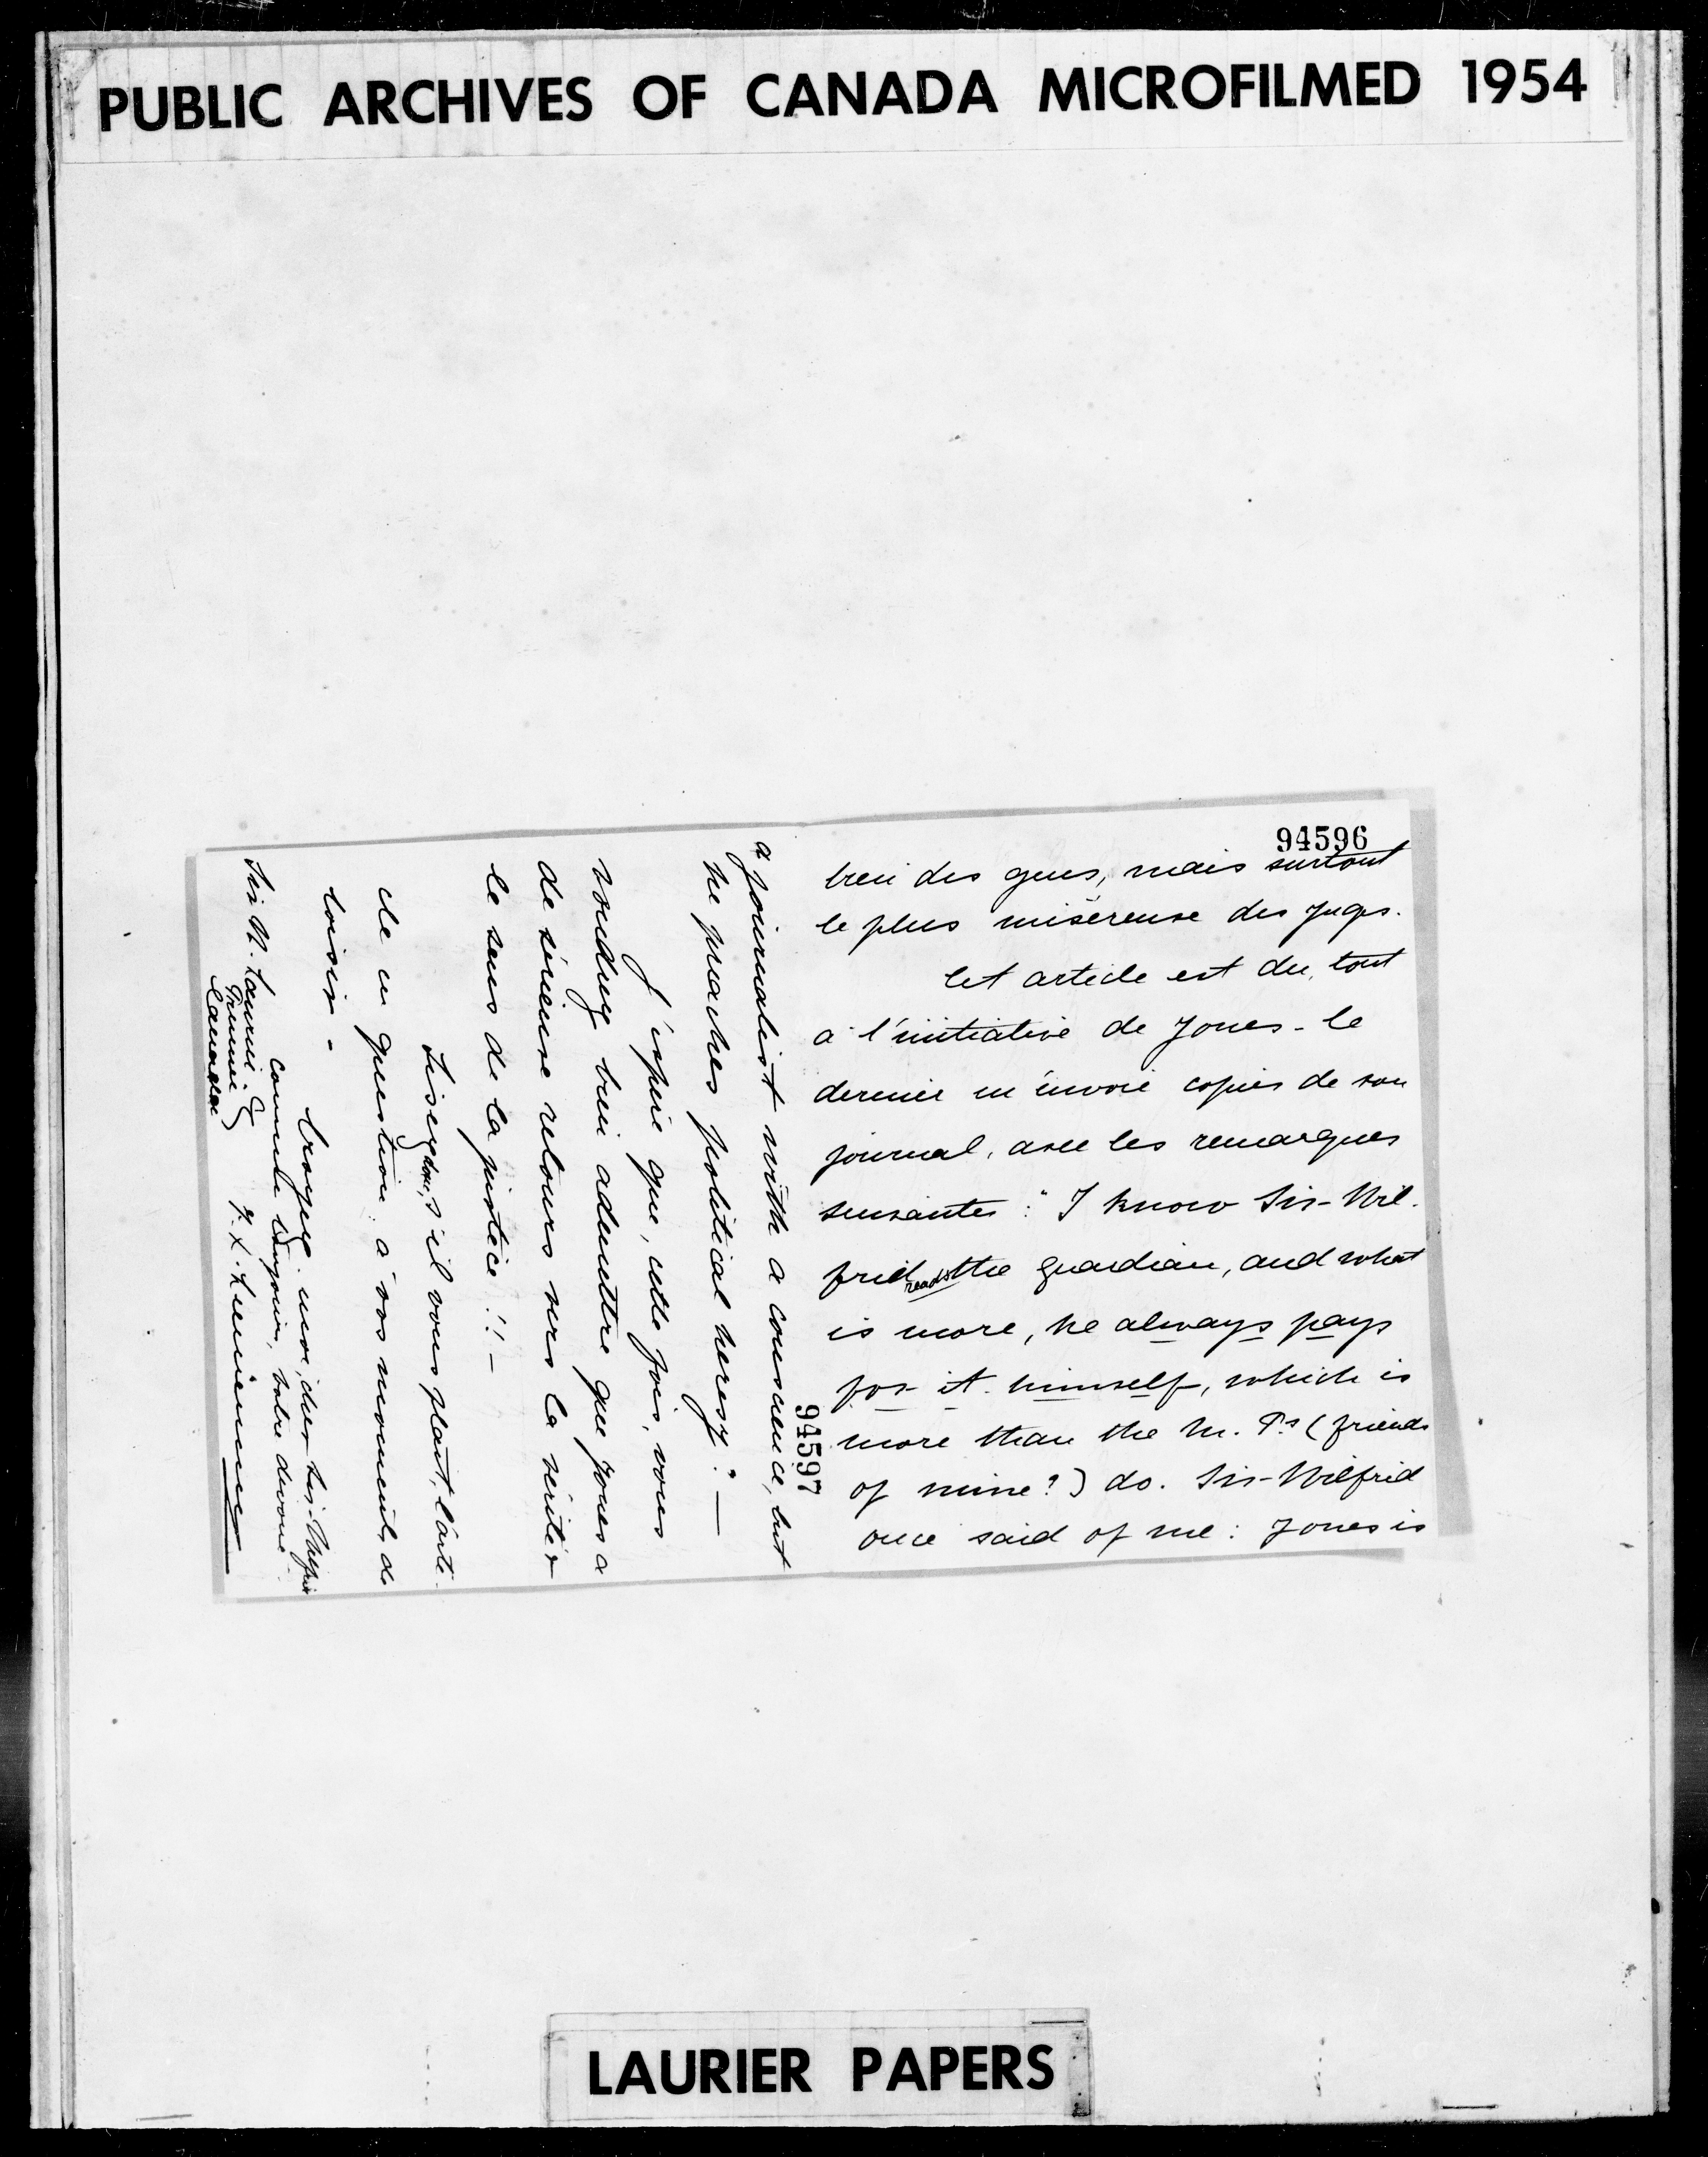 PUBLIC ARCHIVES OF CANADA MICROFILMED 1954
94596
bien des gens, mais surtout
le plus miséreuse des juges.
Cet article est du, tout
à l'initiative de Jones - le
dernier m'envoie copies de son
journal, avec les remarques
suivantes : "I know Sir-Wil-
frid reads the guardian, and what
is more, he always pays
for it himself, which is
more than the M. Ps (friends
of mine?) do. Sir-Wilfrid
once said of me : Jones is
94597
a journalist with a conscience, but
he preaches political heresy." —
J'espère que, cette fois, vous
voudrez bien admettre que Jones a
de sérieuse retours vers la vérité &
le sens de la justice !! —
Lisez donc, s'il vous plait, l'arti-
cle en question : à vos moments de
loisir -
Croyez-moi, cher Sir-Wilfrid
comme toujours, votre dévoué.
Sir W. Laurier
Premier
Canada
F. X. Lemieux
LAURIER PAPERS